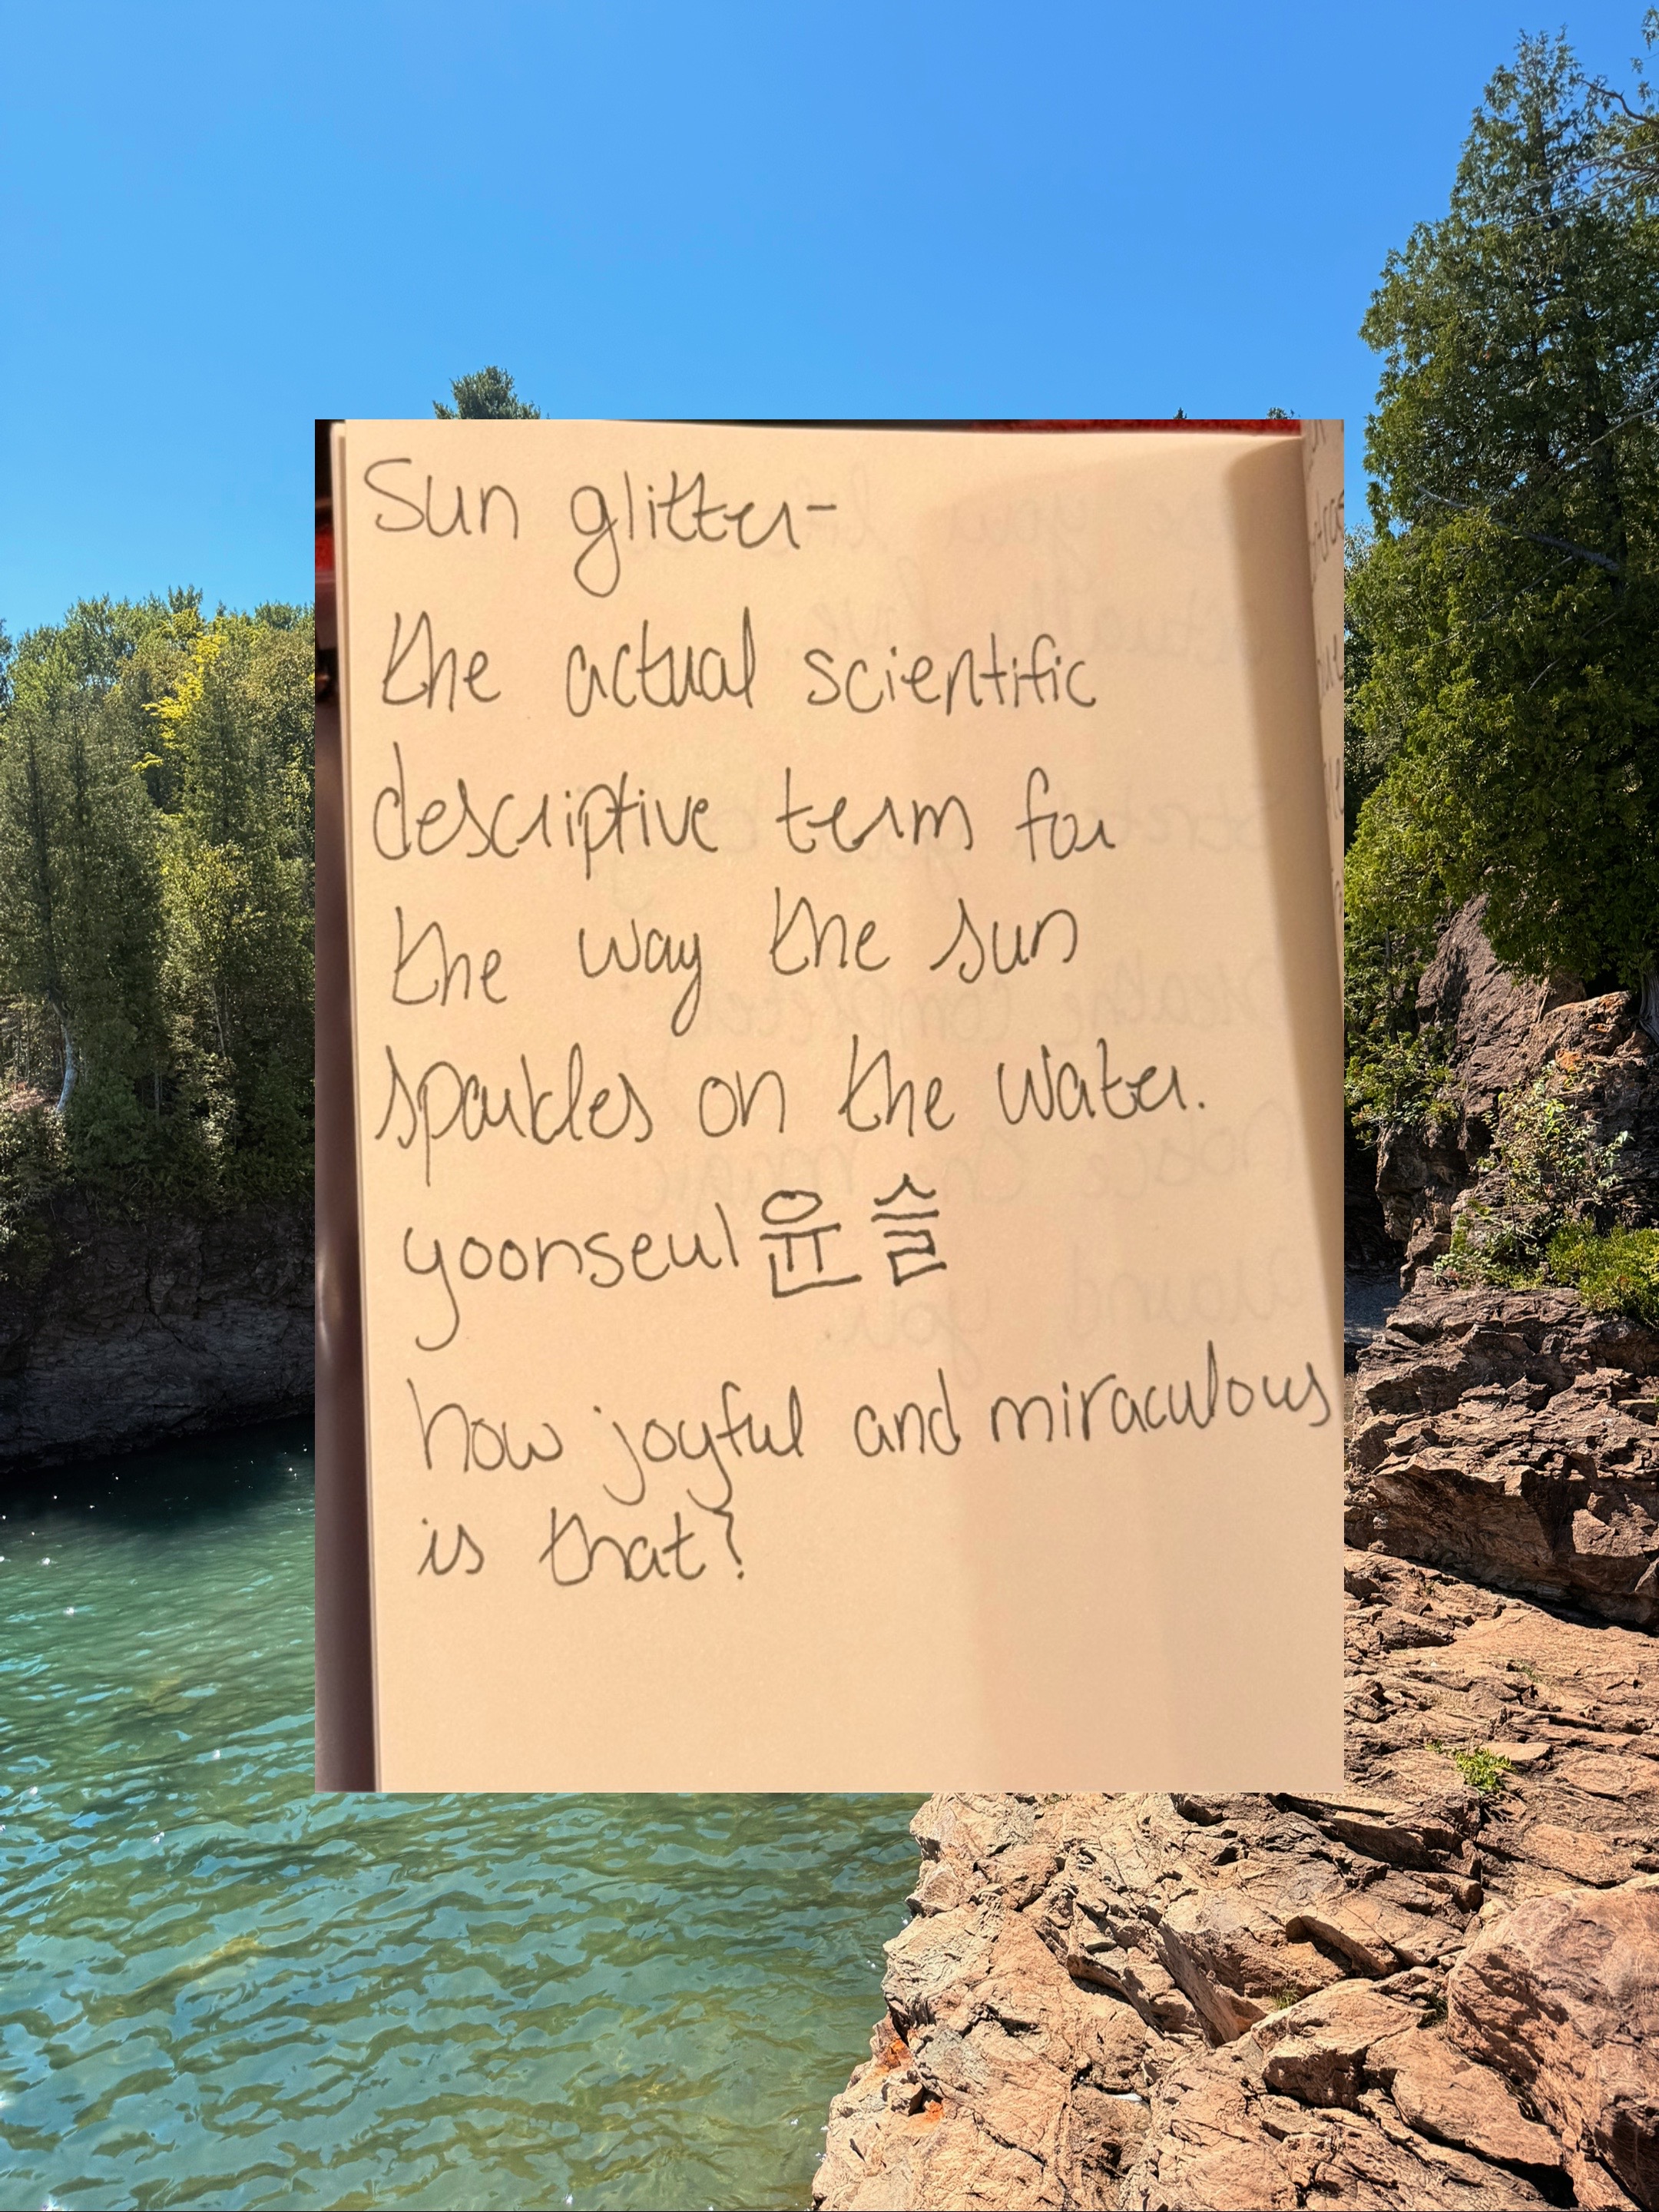 Sun glitter-
the actual scientific
descriptive term for
the way the sun
sparkles on the water.
yoonseul 윤슬
how joyful and miraculous
is that?